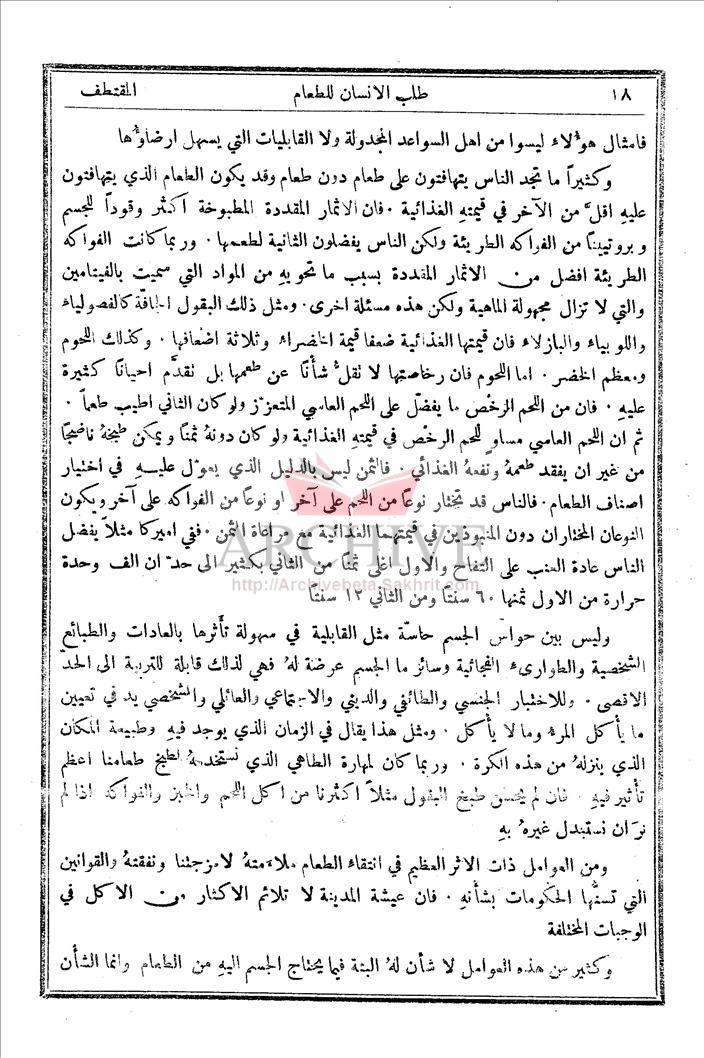 ١٨ طلب الانسان للطعام المقتطف
فامثال هؤلاء ليسوا من اهل السواعد المجدولة ولا القابليات التي يسهل ارضاؤها
وكثيراً ما تجد الناس يتهافتون على طعام دون طعام وقد يكون الطعام الذي يتهافتون
عليهِ اقلَّ من الآخر في قيمتهِ الغذائية . فان الاثمار المقددة المطبوخة اكثر وقوداً للجسم
وبروتييناً من الفواكه الطريئة ولكن الناس يفضلون الثانية لطعمها . وربما كانت الفواكه
الطريئة افضل من الاثمار المقددة بسبب ما تحويهِ من المواد التي سميت بالفيتامين
والتي لا تزال مجهولة الماهية ولكن هذه مسئلة اخرى . ومثل ذلك البقول الجافّة كالفصولياء
واللوبياء والبازلاء فان قيمتها الغذائية ضعفا قيمة الخضراء وثلاثة اضعافها . وكذلك اللحوم
ومعظم الخضر . اما اللحوم فان رخاصتها لا تقلُّ شأناً عن طعمها بل تقدَّم احياناً كثيرة
عليهِ . فان من اللحم الرخْص ما يفضَّل على اللحم العاسي المتعزّز ولو كان الثاني اطيب طعماً .
ثم ان اللحم العاسي مساوٍ للحم الرخْص في قيمتهِ الغذائية ولو كان دونهُ ثمناً ويمكن طبخهُ ناضجاً
من غير ان يفقد طعمهُ ونفعهُ الغذائي . فالثمن ليس بالدليل الذي يعوَّل عليهِ في اختيار
اصناف الطعام . فالناس قد تختار نوعاً من اللحم على آخر او نوعاً من الفواكه على آخر ويكون
النوعان المختاران دون المنبوذين في قيمتهما الغذائية مع مراعاة الثمن . ففي اميركا مثلاً يفضل
الناس عادة العنب على التفاح والاول اغلى ثمناً من الثاني بكثير الى حد ان الف وحدة
حرارة من الاول ثمنها ٦٠ سنتاً ومن الثاني ١٢ سنتاً
وليس بين حواس الجسم حاسّة مثل القابلية في سهولة تأثرها بالعادات والطبائع
الشخصية والطوارىء الفجائية وسائر ما الجسم عرضة لهُ فهي لذلك قابلة للتربية الى الحدّ
الاقصى . وللاختبار الجنسي والطائفي والديني والاجتماعي والعائلي والشخصي يد في تعيين
ما يأكل المرء وما لا يأكل . ومثل هذا يقال في الزمان الذي يوجد فيهِ وطبيعة المكان
الذي ينزلهُ من هذه الكرة . وربما كان لمهارة الطاهي الذي نستخدمهُ لطبخ طعامنا اعظم
تأثير فيهِ . فان لم يحسن طبخ البقول مثلاً اكثرنا من اكل اللحم والخبز والفواكه اذا لم
نرَ ان نستبدل غيرهُ بهِ
ومن العوامل ذات الاثر العظيم في انتقاء الطعام ملاءمتهُ لامزجتنا ونفقتهُ والقوانين
التي تسنُّها الحكومات بشأنهِ . فان عيشة المدينة لا تلائم الاكثار من الاكل في
الوجبات المختلفة
وكثير من هذه العوامل لا شأن لهُ البتة فيما يحتاج الجسم اليهِ من الطعام وانما الشأن
ARCHIVE
http://Archivebeta.Sakhrit.com